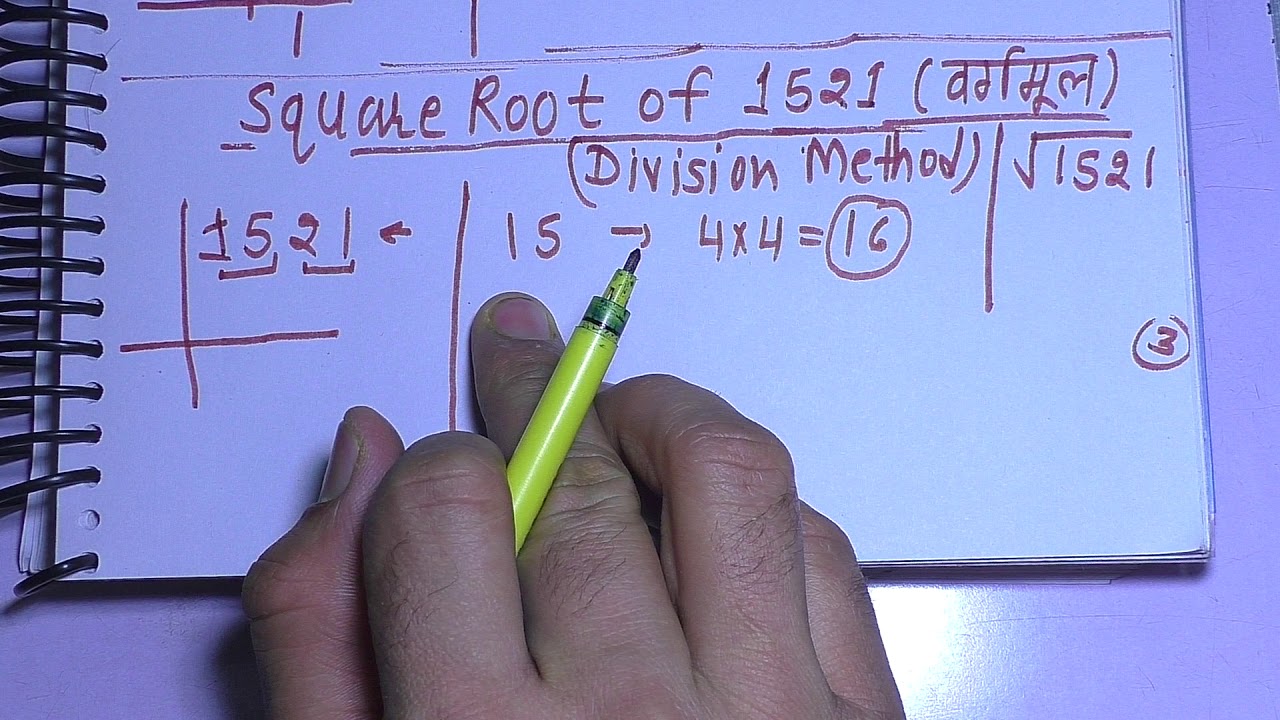 1
Square Root of 1521 (वर्गमूल)
(Division Method) √1521
1521 ← 15 → 4×4=16
3